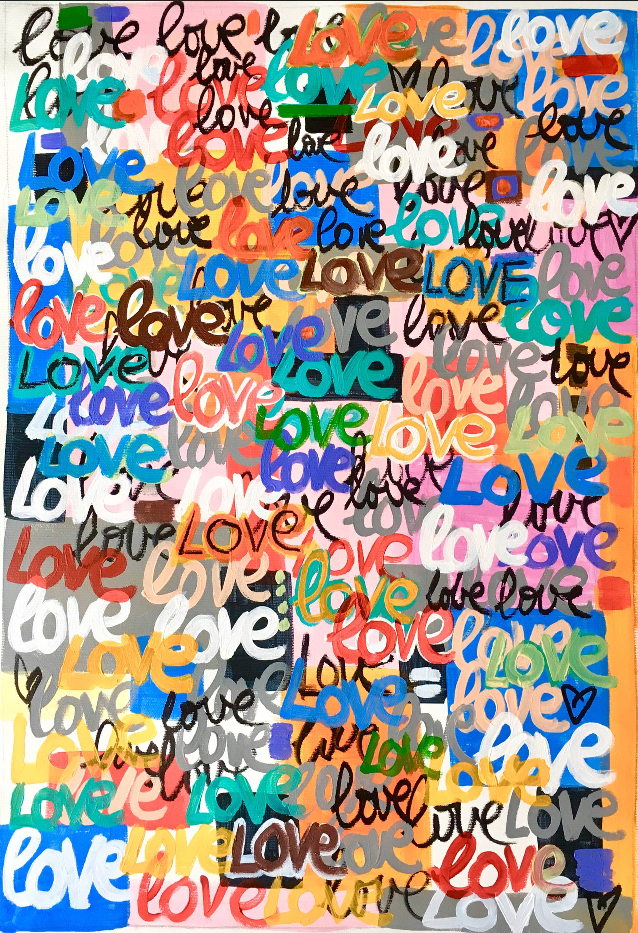 love love love Love ve love
love love love love
Love love Love Love love
love love
love Love love ove love
Love love love love love
love love love love love
love love Love love love love
love love Love Love LOVE love
love love ve Love ve love love
Love Love Love love love
Love love Love love love
Love love Love Love Love
Love Love love Love
Love love love love
love Love love Love Love
Love love love love love
love love Love love
Love Love love Love
love love Love love
Love love love Love love
love love Love love
Love Love love ove Love
love Love Love ove Love
love Love love Love